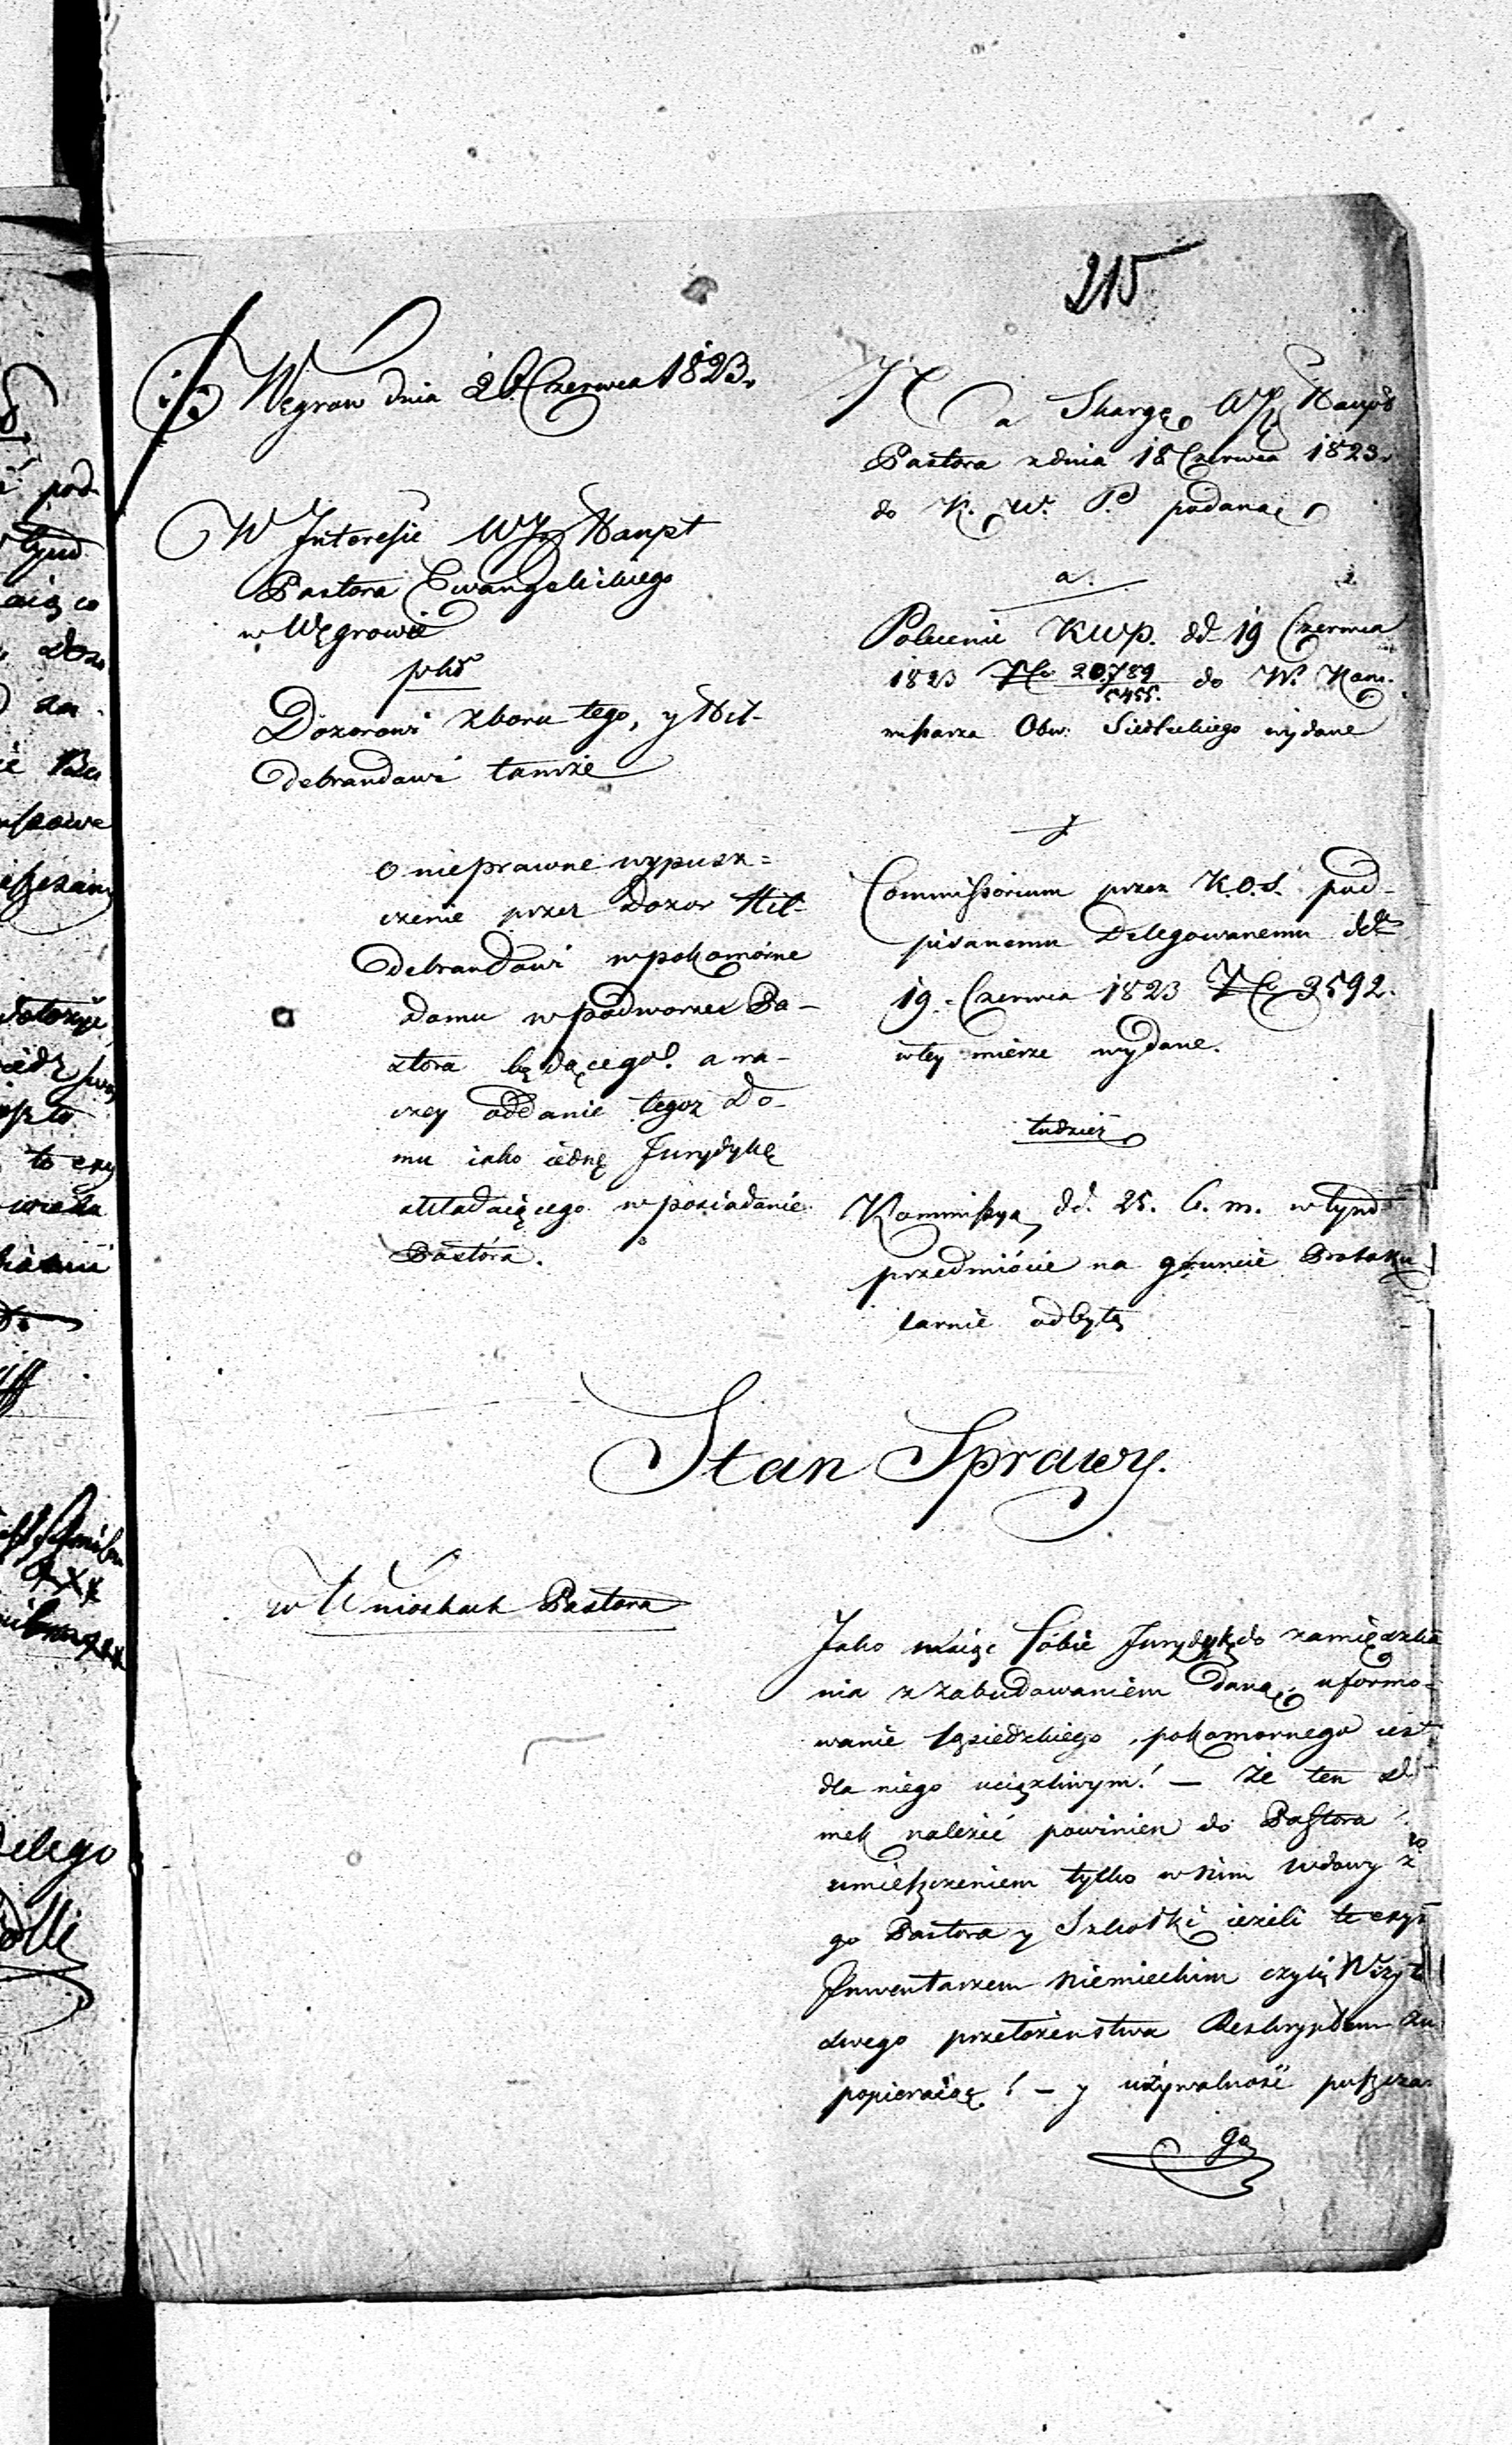 215
Węgrow dnia 26 Czerwca 1823.
W Interesie WJX Haupt
Pastora Ewangelickiego
w Węgrowie
pko
Dozorowi zboru tego, y Hil-
debrandowi tamże
o nieprawne wypusz=
czenie przez Dozor Hil-
debrandowi w pokomorne
Domu w podworzu Pa-
stora będącego. a ra-
czey oddanie tegoz Do-
mu iako iednę Jurydykę
składaiącego w posiadanie
Pastora.
Na Skargę WJX Haupt
Pastora z dnia 18 Czerwca 1823.
do K. W. P. podaną
a.
Polecenie KWP. dd 19 Czerwca
1823 No 20,789
5455.
do W. Kom-
missarza Obw: Siedleckiego wydane
y
Commissorium przez K.O.S. pod-
pisanemu Delegowanemu dd
19. Czerwca 1823 No 3592.
w tey mierze wydane.
tudzież
Kommissyą dd. 25. b. m. w tym
przedmiócie na gruncie Protoku-
larnie odbytą
Stan Sprawy.
w Wnioskach Pastora
Jako maiąc sobie Jurydykę do zamieszka
nia z zabudowaniem daną, uformo-
wanie sąsiedzkiego, pokomornego iest
dla niego uciążliwym! — Ze ten
mek należeć powinien do Pastora
umieszczeniem tylko w nim wdowy
go Pastora y Szkołki ieżeli
Inwentarzem Niemieckim czyli
dwego przełożenstwa Reskryptem
popieraiąc! — y używalność puszcza-
go